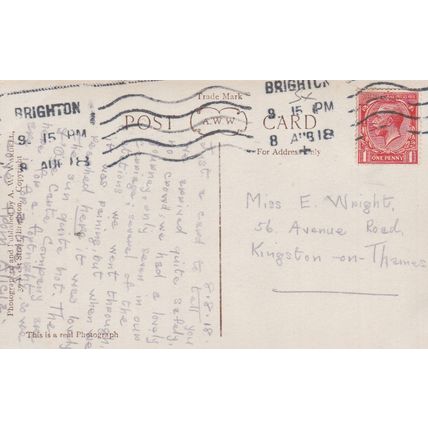 BRIGHTON
9. 15 PM
8 AUG 18
BRIGHTON
9. 15 PM
8 AUG 18
Trade Mark
A.W.W.
POST CARD
For Address Only
ONE PENNY
Miss E. Wright,
56. Avenue Road,
Kingston-on-Thames
8.8.18.
Just a card to tell you
we arrived quite safely.
no crowd, we had a lovely
journey, only seven in our
carriage, several of the
we went through,
was raining but when we
reached here it was lovely
the sun quite hot. The
This is a real Photograph
Photographed and Published by A.W. WARDELL,
Brighton. Copyright